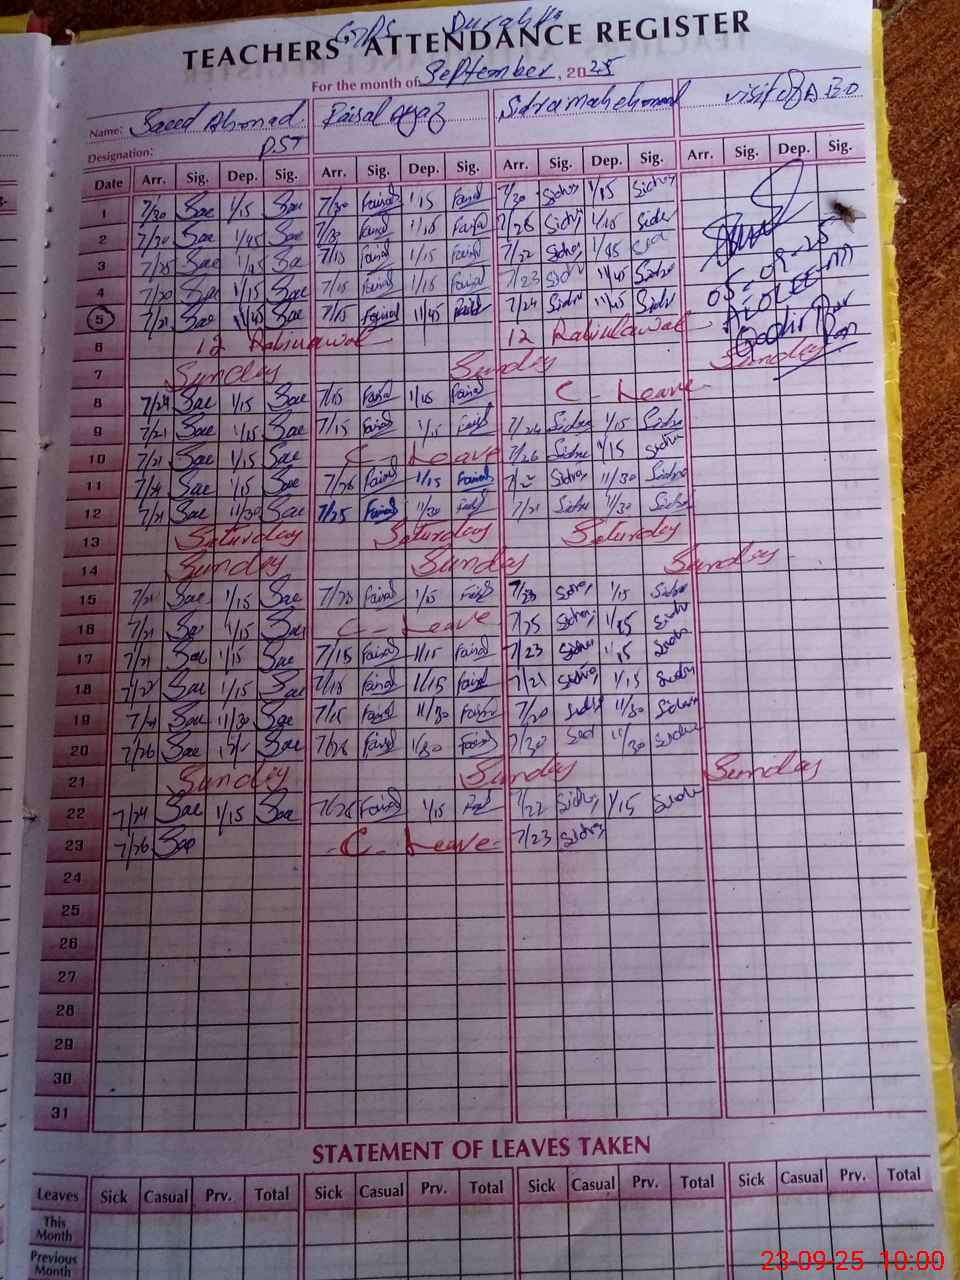 GPS
TEACHERS' ATTENDANCE REGISTER
For the month of September, 2025
Name: Saeed Ahmad Faisal ayaz Sidra mahehmood visit of A.E.O
Designation: PST
Date Arr. Sig. Dep. Sig. Arr. Sig. Dep. Sig. Arr. Sig. Dep. Sig. Arr. Sig. Dep. Sig.
1 7/30 Sae 1/15 Sae 7/30 Faisal 1/15 Faisal 7/30 Sidra 1/15 Sidra
2 Sae 1/45 Sae 7/30 Faisal 1/15 Faisal 7/26 Sidra 1/45 Sidr
3 7/25 Sae 1/45 Sae 7/15 Faisal 1/15 Faisal 7/22 Sidra 1/45
4 7/20 Sae 1/15 Sae 7/15 Faisal 1/15 Faisal 7/23 Sidr 11/45 Sidra
05-09-25
5 7/21 Sae 11/45 Sae 7/15 Faisal 11/45 Faisal 7/24 Sidra 11/45 Sidr
6 12 Rabiulawal 12 Rabiulawal
7 Sunday Sunday Sunday
8 7/24 Sae 1/15 Sae 7/15 Faisal 1/15 Faisal C- Leave
9 7/21 Sae 1/15 Sae 7/15 Faisal 1/15 Faisal 7/24 Sidra 1/15 Sidra
10 7/21 Sae 1/15 Sae C- Leave 7/26 Sidra 1/15 Sidra
11 7/21 Sae 1/15 Sae 7/26 Faisal 11/15 Faisal Sidra 11/30 Sidra
12 7/21 Sae 11/30 Sae 7/25 Faisal 11/30 Faisal 7/21 Sidra 11/30 Sidra
13 Saturday Saturday Saturday
14 Sunday Sunday Sunday
15 7/21 Sae 1/15 Sae 7/23 Faisal 1/15 Faisal 7/23 Sidra 1/15 Sidra
16 7/21 Sae 1/15 Sae C- Leave 7/25 Sidra 1/15 Sidra
17 7/21 Sae 1/15 Sae 7/15 Faisal 1/15 Faisal 7/23 Sidra 1/15 Sidra
18 7/23 Sae 1/15 Sae 7/15 Faisal 1/15 Faisal 7/21 Sidra 1/15 Sidra
19 7/21 Sae 11/30 Sae 7/15 Faisal 11/30 Faisal 7/20 Sidra 11/30 Sidra
20 7/26 Sae Sae 7/26 Faisal 11/30 Faisal 7/30 Sidra 11/30 Sidra
21 Sunday Sunday Sunday
22 7/24 Sae 1/15 Sae 7/26 Faisal 1/15 Faisal 7/22 Sidra 1/15 Sidra
23 7/26 Sae C- Leave 7/23 Sidra
24
25
26
27
28
29
30
31
STATEMENT OF LEAVES TAKEN
Leaves Sick Casual Prv. Total Sick Casual Prv. Total Sick Casual Prv. Total Sick Casual Prv. Total
This Month
Previous Month
23-09-25 10:00